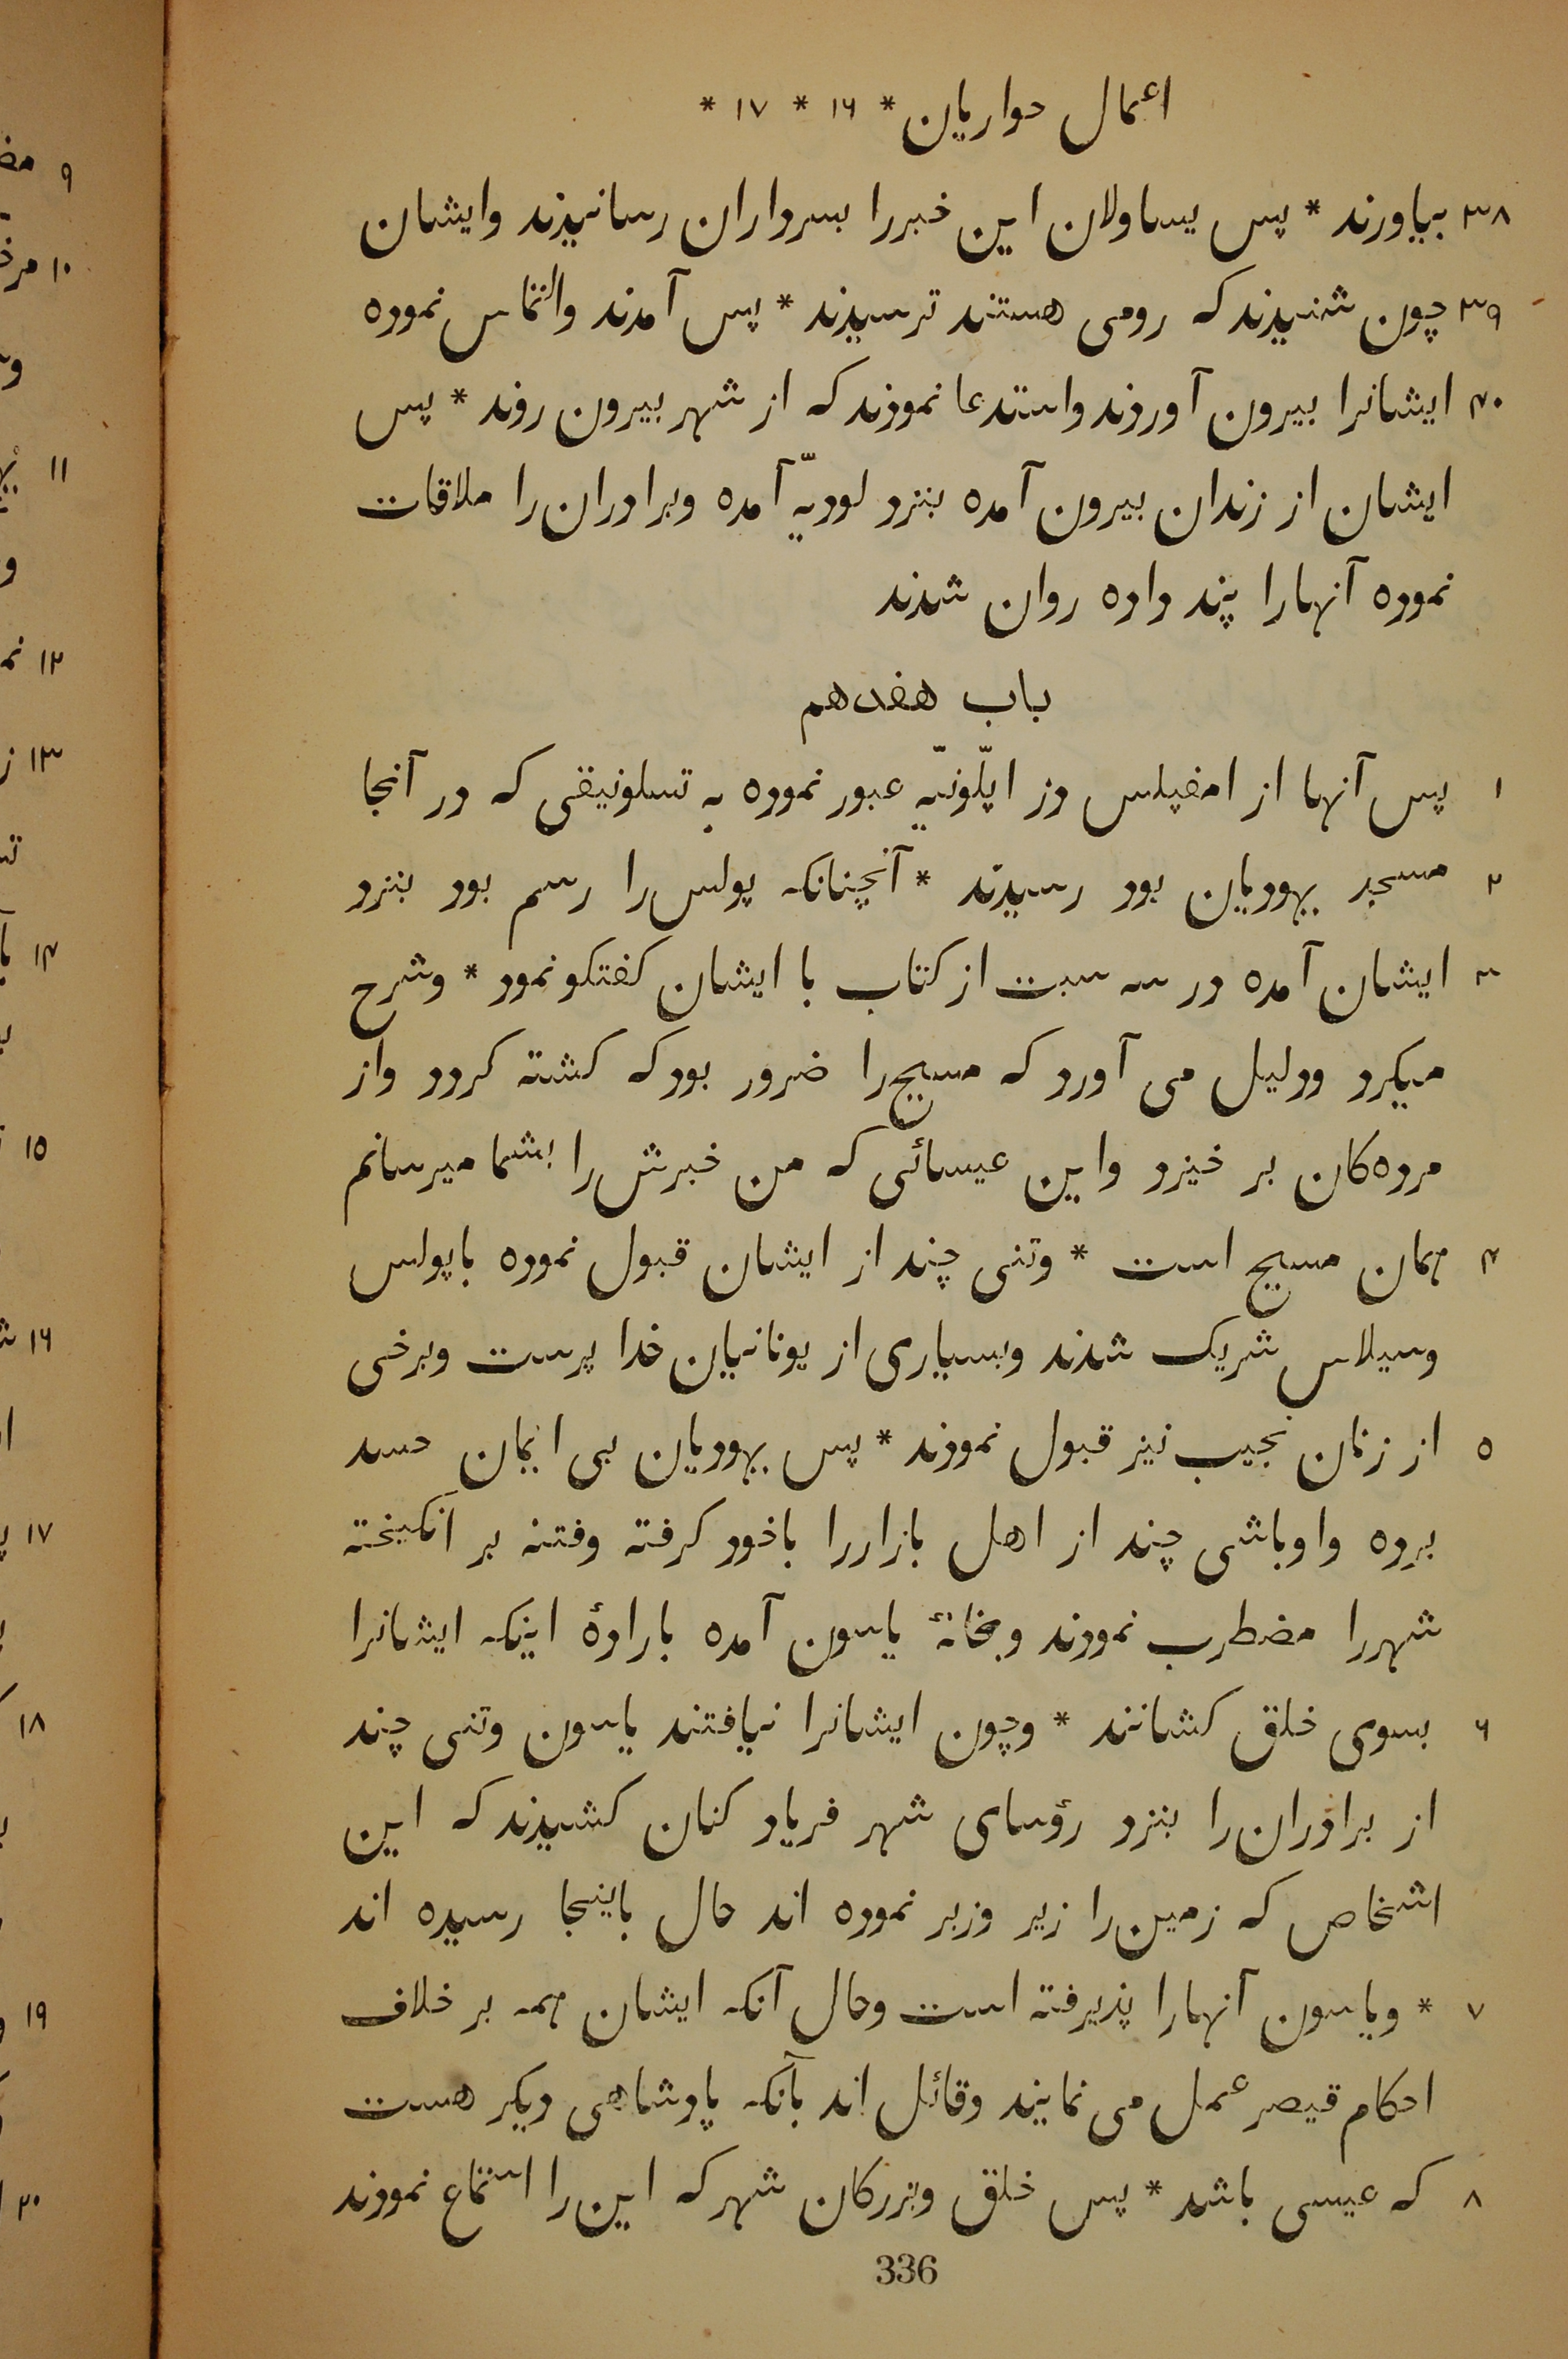 اعمال حواریان * ۱۶ * ۱۷ *
۳۸ بیاورند * پس یساولان این خبررا بسرداران رسانیدند وایشان
۳۹ چون شنیدند که رومی هستند ترسیدند * پس آمدند والتماس نموده
۴۰ ایشانرا بیرون آوردند واستدعا نمودند که از شهر بیرون روند * پس
ایشان از زندان بیرون آمده بنزد لودیّه آمده وبرادران را ملاقات
نموده آنهارا پند داده روان شدند
باب هفدهم
۱ پس آنها از امفپلس وز اپلّونیّه عبور نموده به تسلونیقی که در آنجا
۲ مسجد یهودیان بود رسیدند * آنچنانکه پولس را رسم بود بنزد
۳ ایشان آمده در سه سبت از کتاب با ایشان کفتکو نمود * وشرح
میکرد ودلیل می آورد که مسیح را ضرور بود که کشته کردد واز
مرده‌کان بر خیزد واین عیسائی که من خبرش را بشما میرسانم
۴ همان مسیح است * وتنی چند از ایشان قبول نموده باپولس
وسیلاس شریک شدند وبسیاری از یونانیان خدا پرست وبرخی
۵ از زنان نجیب نیز قبول نمودند * پس یهودیان بی ایمان حسد
برده واوباشی چند از اهل بازاررا باخود کرفته وفتنه بر انکیخته
شهررا مضطرب نمودند وبخانهٔ یاسون آمده بارادهٔ اینکه ایشانرا
۶ بسوی خلق کشانند * وچون ایشانرا نیافتند یاسون وتنی چند
از برادران را بنزد رؤسای شهر فریاد کنان کشیدند که این
اشخاص که زمین را زیر وزبر نموده اند حال باینجا رسیده اند
۷ * ویاسون آنهارا پذیرفته است وحال آنکه ایشان همه بر خلاف
احکام قیصر عمل می نمایند وقائل اند بآنکه پادشاهی دیکر هست
۸ که عیسی باشد * پس خلق وبزرکان شهر که این را استماع نمودند
336
۹
۱۰
۱۱
۱۲
۱۳
۱۴
۱۵
۱۶
۱۷
۱۸
۱۹
۲۰